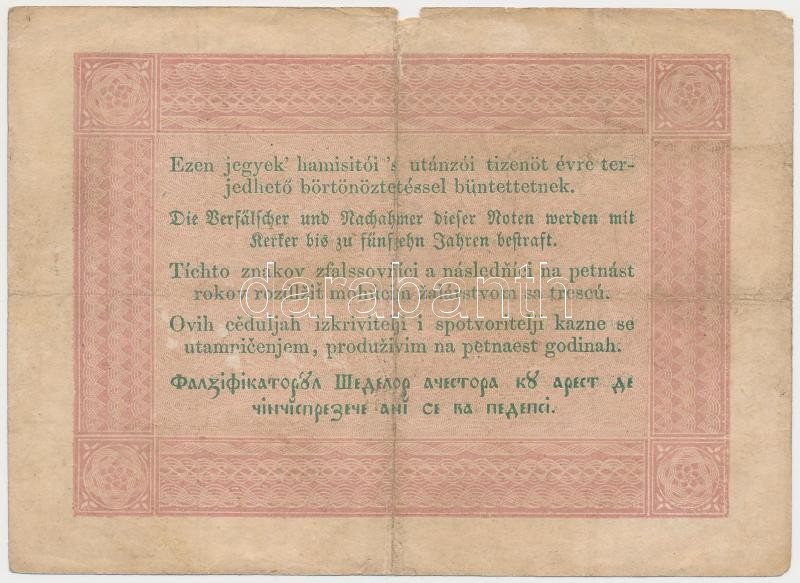 Ezen jegyek' hamisitói 's utánzói tizenöt évre ter-
jedhető börtönöztetéssel büntettetnek.
Die Verfälscher und Nachahmer dieser Noten werden mit
Kerker bis zu fünfzehn Jahren bestraft.
Tíchto znákov zfalssovníci a následňíci na petnást
rokov rozdlžiť mohúcim žalárstvom sa trescú.
darabanth
Ovih cĕduljah izkrivitelji i spotvoritelji kazne se
utamričenjem, produživim na petnaest godinah.
Фалꙁіфікаторꙋл Шеделор ачестора кꙋ арест де
чінчіспреꙁече анĭ се ва педепсі.